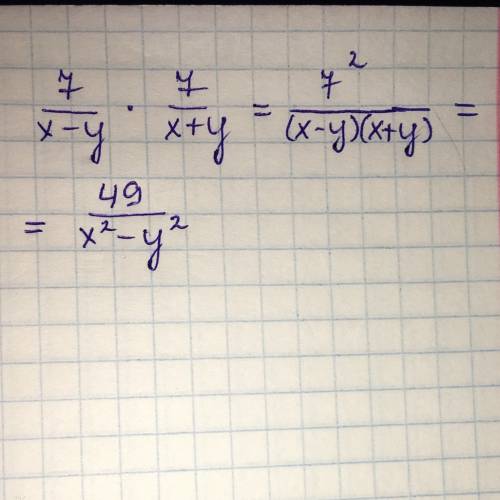 7/(x-y) · 7/(x+y) = 7²/((x-y)(x+y)) =
= 49/(x²-y²)